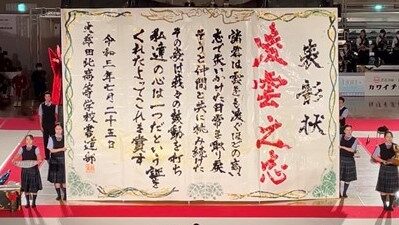 表彰状
凌雲之志
諸君は雲をも凌ぐほどの高い
志で失いかけた日常を取り戻
そうと仲間と共に挑み続けた
その姿は我々の鼓動を打ち
私達の心は一つだという証を
くれたよってこれを賞す
令和三年七月二十五日
大牟田北高等学校書道部
カワイチ